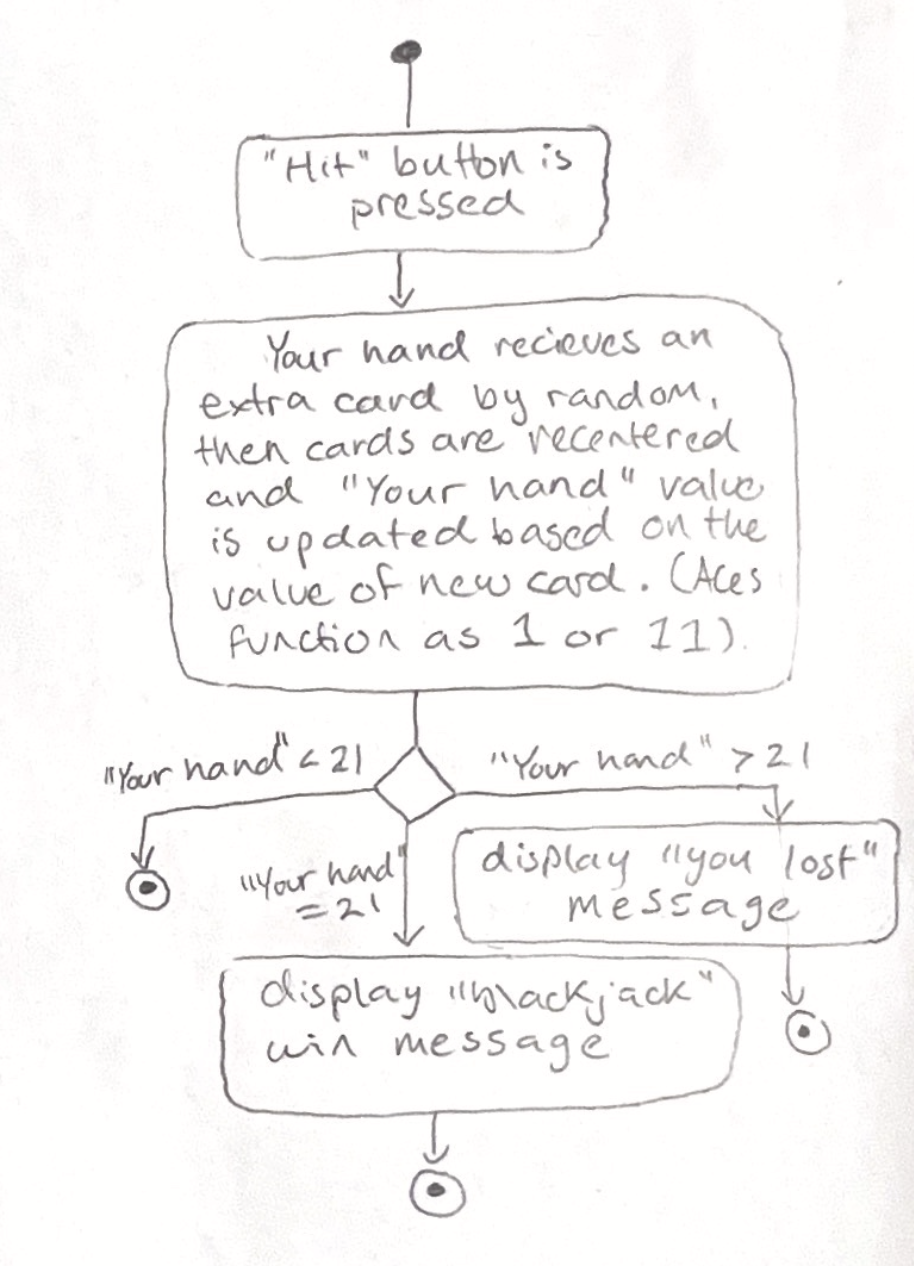 "Hit" button is
pressed
Your hand recieves an
extra card by random,
then cards are recentered
and "Your hand" value
is updated based on the
value of new card. (Aces
function as 1 or 11).
"Your hand" < 21
"Your hand" > 21
"Your hand"
= 21
display "you lost"
message
display "blackjack"
win message